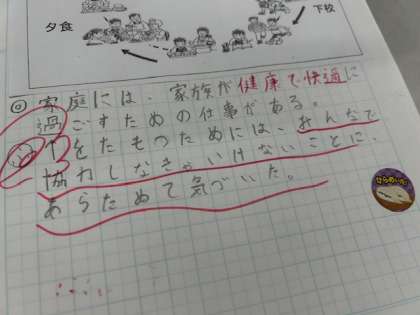 夕食
下校
◎家庭には、家族が健康で快適に
過ごすための仕事がある。
をたもつためには、みんなで
協力しなきゃいけないことに、
あらためて気づいた。
ひらめいた!